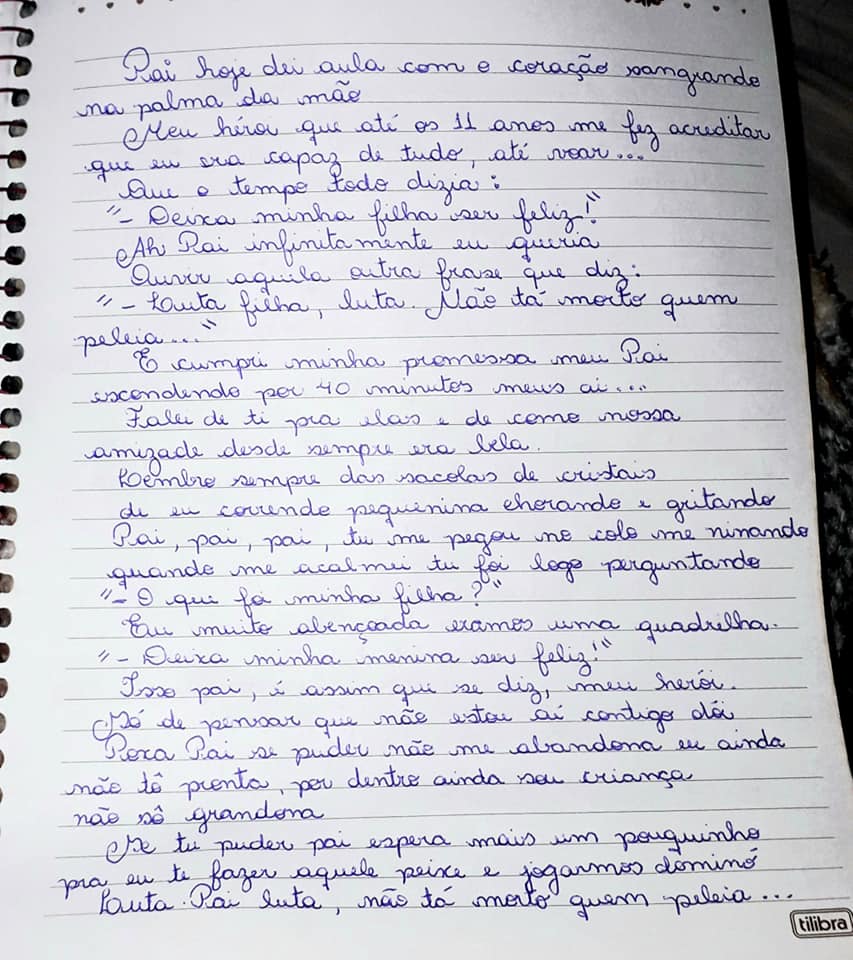 Pai hoje dei aula com o coração sangrando
na palma da mão
Meu hérói que até os 11 anos me fez acreditar
que eu era capaz de tudo, até voar...
Que o tempo todo dizia:
"- Deixa minha filha ser feliz!"
Ah Pai infinitamente eu queria
Ouvir aquila outra frase que diz:
"- Luta filha, luta. Não tá morto quem
peleia..."
E cumpri minha promessa meu Pai
escondendo por 40 minutos meus ai...
Falei de ti pra elas e de como nossa
amizade desde sempre era bela.
Lembro sempre das sacolas de cristais
de eu correndo pequenina chorando e gritando
Pai, pai, pai, tu me pegou no colo me ninando
quando me acalmei tu foi logo perguntando
"- O que foi minha filha?"
Eu muito abençoada eramos uma quadrilha.
"- Deixa minha menina ser feliz!"
Isso pai, é assim que se diz, meu herói.
Só de pensar que não estou aí contigo dói
Poxa Pai se puder não me abandona eu ainda
não tô pronta, por dentro ainda sou criança
não sô grandona
Se tu puder pai espera mais um pouquinho
pra eu te fazer aquele peixe e jogarmos dominó
Luta Pai luta, não tá morto quem peleia...
tilibra